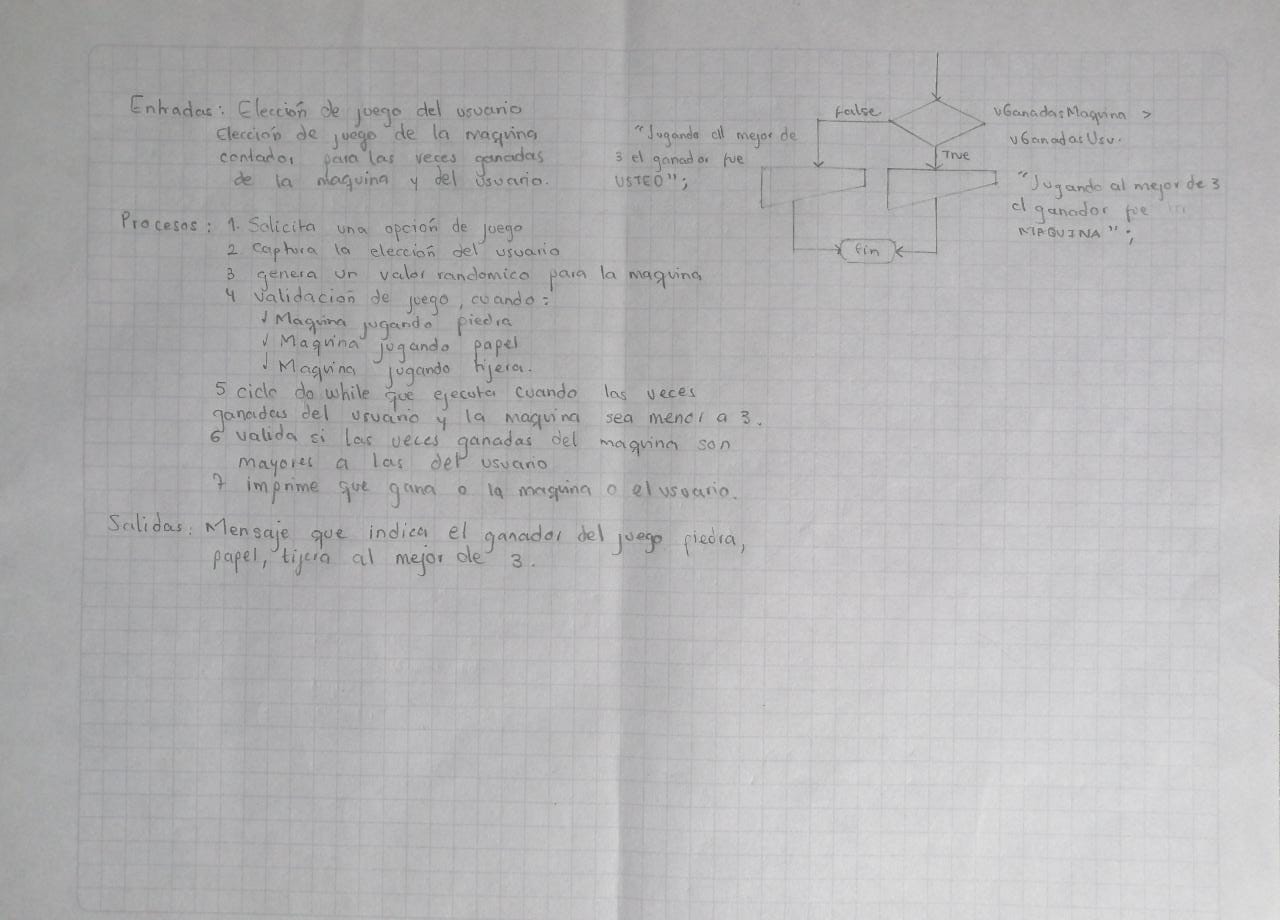 Entradas: Elección de juego del usuario
Elección de juego de la maquina
contador para las veces ganadas
de la maquina y del usuario.
Procesos: 1. Solicita una opción de juego
2 Captura la elección del usuario
3 genera un valor randomico para la maquina
4 Validación de juego, cuando:
✓ Maquina jugando piedra
✓ Maquina jugando papel
✓ Maquina jugando tijera.
5 ciclo do while que ejecuta cuando las veces
ganadas del usuario y la maquina sea menor a 3.
6 valida si las veces ganadas del maquina son
mayores a las del usuario
7 imprime que gana o la maquina o el usuario.
Salidas: Mensaje que indica el ganador del juego piedra,
papel, tijera al mejor de 3.
False
vGanadasMaquina >
vGanadasUsu.
True
"Jugando al mejor de
3 el ganador fue
USTED";
"Jugando al mejor de 3
el ganador fue
MAQUINA";
fin